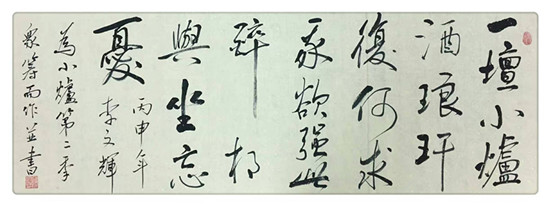 一壇小爐
酒琅玕
復何求
我欲强此
醉相
與坐忘
憂
丙申年
李文輝
為小爐第二季
眾籌而作並書